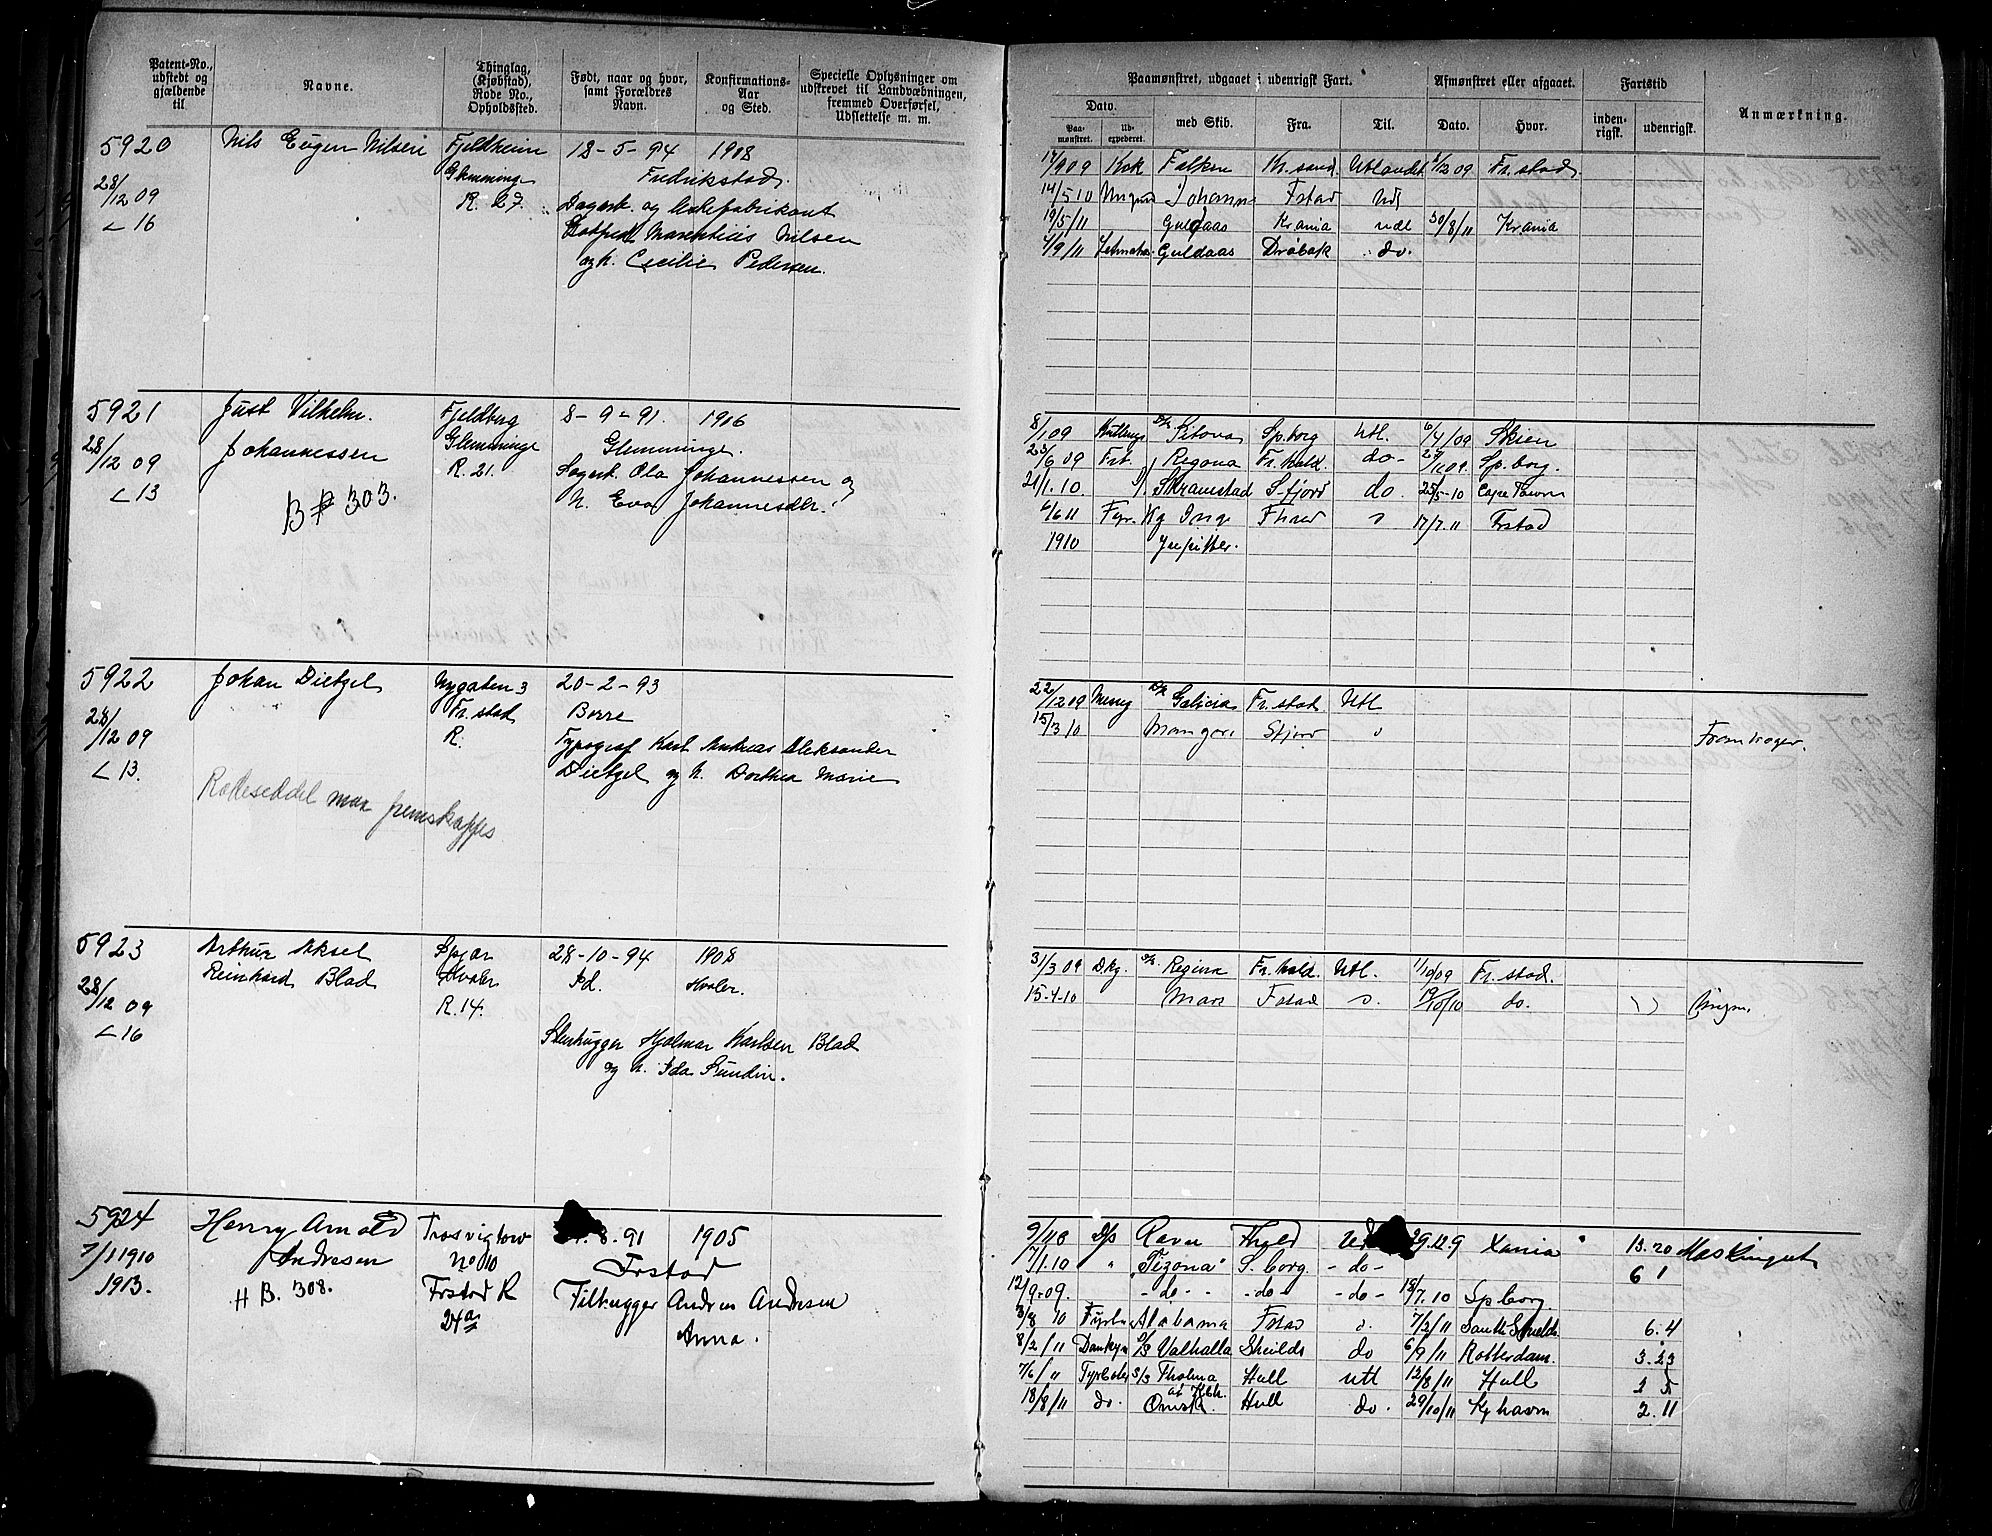 Patent-No., udstedt og gjældende til
Navne.
Thinglag, (Kjøbstad), Rode No., Opholdssted.
Født, naar og hvor, samt Forældres Navn.
Konfirmations-Aar og Sted.
Specielle Oplysninger om udskrevet til Landvæbningen, fremmed Overførsel, Udslettelse m. m.
5920 Nils Eugen Nilsen Fjeldheim 18-5-94 1908
28/12 09 Glemminge Fredrikstad.
R. 27. Dagarb. og
< 16 Nilsen
og h. Cecilie Pedersen.
5921 Just Vilhelm. Fjeldberg 8-9-91. 1906
28/12 09 Johannessen Glemminge Glemminge.
R. 21. Dagarb. Ola Johannessen og
< 13 h. Eva Johannesdtr.
B # 303.
5922 Johan Dietzel Nygaten 3 20-2-93
Fr.stad Borre
28/12 09 R. Typograf Karl Andreas Aleksander
< 13. Dietzel og h. Dorthea Marie
Rodeseddel maa fremskaffes
5923 Arthur Aksel Spjær 28-10-94 1908
Reinhard Blad Hvaler sd. Hvaler.
28/12 09 R. 14.
< 16 Stenhugger Hjalmar Karlsen Blad
og h. Ida Sundin.
5924 Henry Arnold Trosvigtorv 8.91 1905
7/1 1910 Andresen No 10 Frstad
1913. H B. 308. Frstad R Filhugger Andreas Andresen
24a Anna.
Paamønstret, udgaaet i udenrigsk Fart.
Afmønstret eller afgaaet.
Fartstid
Anmærkning.
Dato.
Paa-mønstret.
Ud-expederet.
med Skib.
Fra.
Til.
Dato.
Hvor.
inden-rigsk.
udenrigsk.
17/9 09 Kok Falken Kr.sand Utlandet /12 09 Fr.stad.
14/5 10 Ungmd Johanne Fstad Udl
19/5/11 Guldaas Krania udl 30/8/11 Krania
4/9/11 Letmatros Guldaas Drøbak do.
8/1 09 D/S Sitona Sp.borg Utl. 6/4/09 Skien
25/6 09 Frb. Regona Fr.hald. do- Sp.borg.
21/1.10. Skramstad S-fjord do. 25/5-10 Cape Town
6/6 11 Fyr. Kg Inge Fhald 17/7.11 Frstad
1910 Jupitter.
22/12 09 Messg D/S Galicia Fr.stad Utl
15/3 10 Mangor
31/3 09 Dkg. D/S Regina Fr.hald. Utl. 1/10/09 Fr.stad.
15-4-10 Mars Fstad 19/10/10 do.
9/1 08 D/s Ravn Fhald 29.12.9 Xania 13.20 Maskingut
7/1.10 " "Tizona" S.borg. -do- 6 1
12/9-09. -do- -do- -do- 18/7.10 Spborg.
3/8 10 Fyrb. Alabama Fstad 7/2/11 South Shields 6.4
8/2/11 Dankyn D/S Valhalla Sheilds do 6/9/11 Rotterdam. 3.23
7/6/" Fyrbøter S/S Tholma Hull utl 12/8/11 Hull 2 5
18/8/11 do. Omsk af Kbh. Hull do. 29/10/11 Kjhavn 2.11